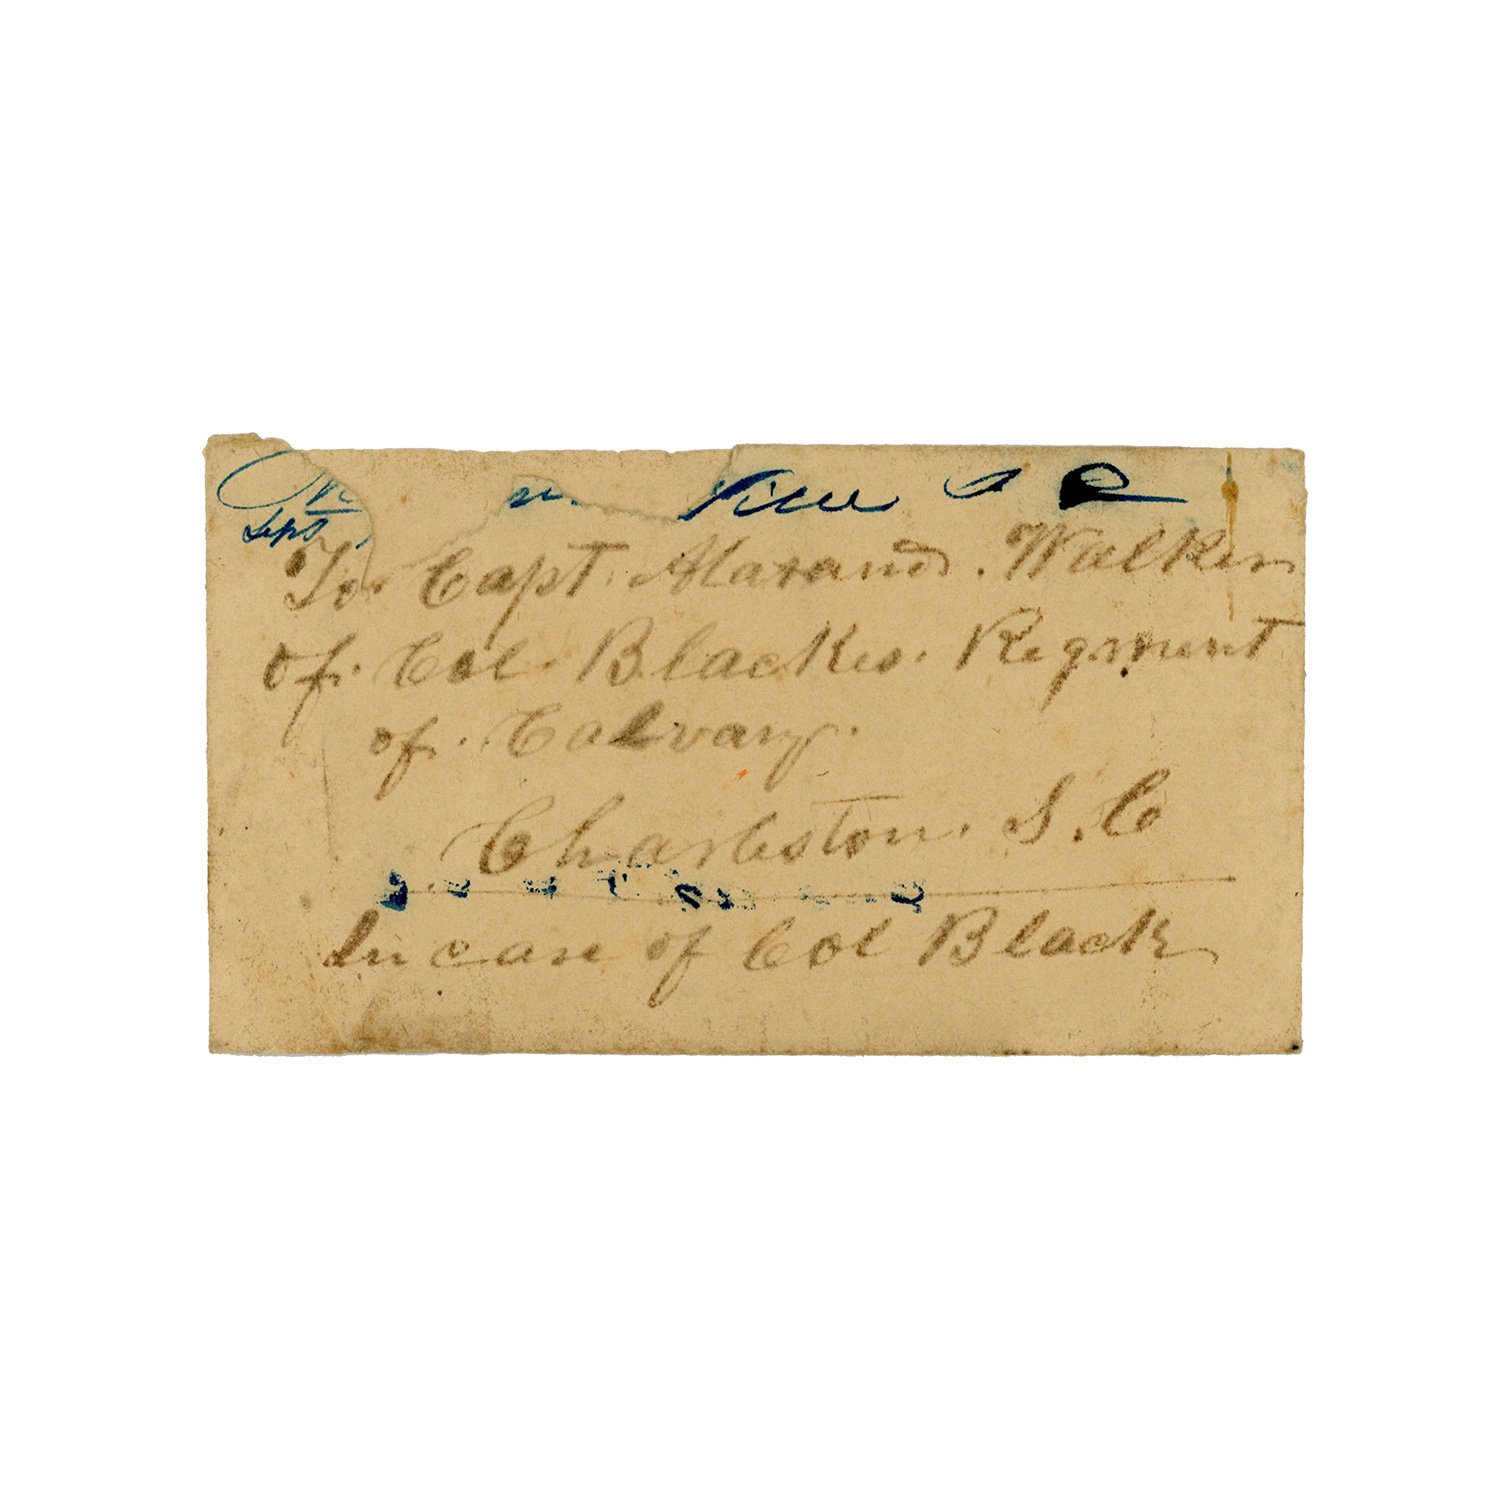 Sept
ville S C
To Capt. Alaxand. Walker
of. Col Blackes. Regment
of. Calvary.
Charleston. S. C
In care of Col Black